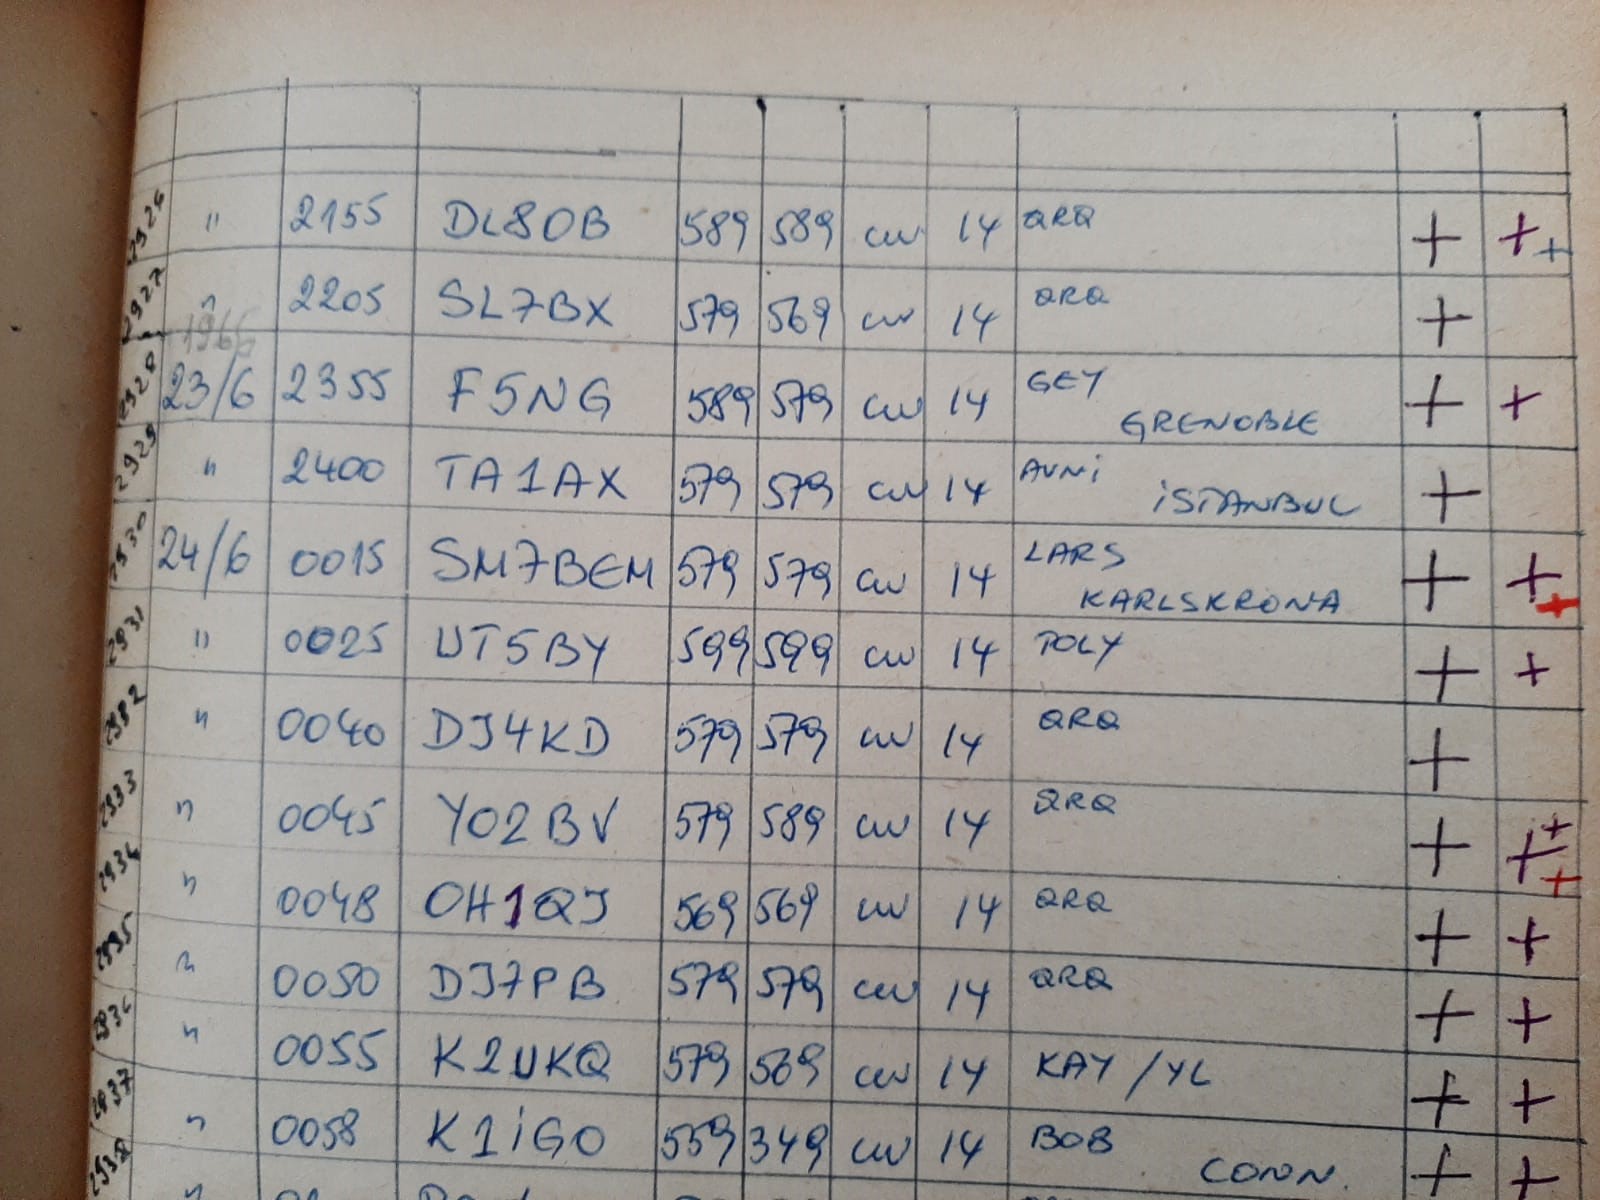 2926 " 2155 DL8OB 589 589 cw 14 QRQ + + +
2927 " 2205 SL7BX 579 569 cw 14 QRQ +
1966
2928 23/6 2355 F5NG 589 579 cw 14 GEY + +
GRENOBLE
2929 " 2400 TA1AX 579 579 cw 14 AVNi +
iSTANBUL
2930 24/6 0015 SM7BEM 579 579 cw 14 LARS + + +
KARLSKRONA
2931 " 0025 UT5BY 599 599 cw 14 TOLY + +
2932 " 0040 DJ4KD 579 579 cw 14 QRQ +
2933 " 0045 YO2BV 579 589 cw 14 QRQ + + + +
2934 " 0048 OH1QJ 569 569 cw 14 QRQ + +
2935 " 0050 DJ7PB 579 579 cw 14 QRQ + +
2936 " 0055 K2UKQ 579 569 cw 14 KAY/YL + +
2937 " 0058 K1iGO 559 349 cw 14 BOB + +
CONN.
2938 "